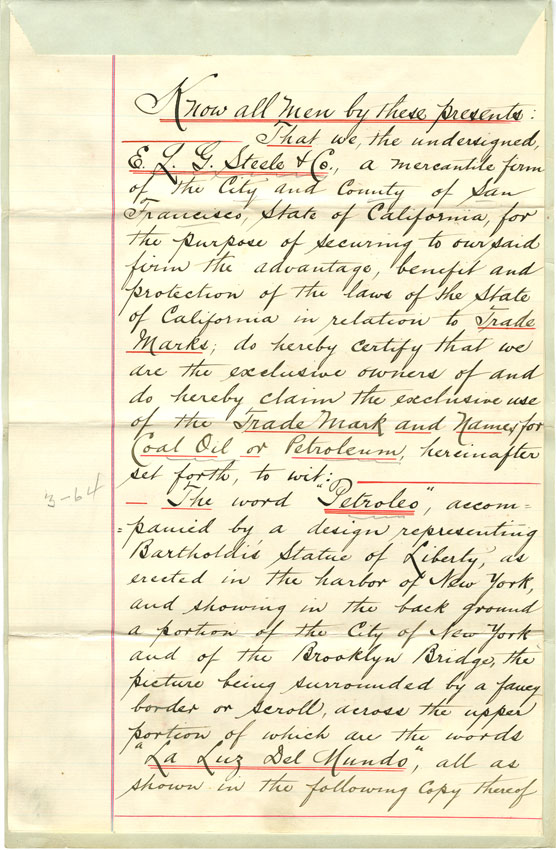 Know all men by these presents:
That we, the undersigned,
E. L. G. Steele & Co., a mercantile firm
of the City and County of San
Francisco, State of California, for
the purpose of securing to our said
firm the advantage, benefit and
protection of the laws of the State
of California in relation to Trade
Marks; do hereby certify that we
are the exclusive owners of and
do hereby claim the exclusive use
of the Trade Mark and Name, for
Coal Oil or Petroleum, hereinafter
set forth, to wit:
3-64
— The word "Petroleo", accom=
=panied by a design representing
Bartholdi's Statue of Liberty, as
erected in the harbor of New York,
and showing in the back ground
a portion of the City of New York
and of the Brooklyn Bridge, the
picture being surrounded by a fancy
border or scroll, across the upper
portion of which are the words
"La Luz Del Mundo", all as
shown in the following Copy thereof